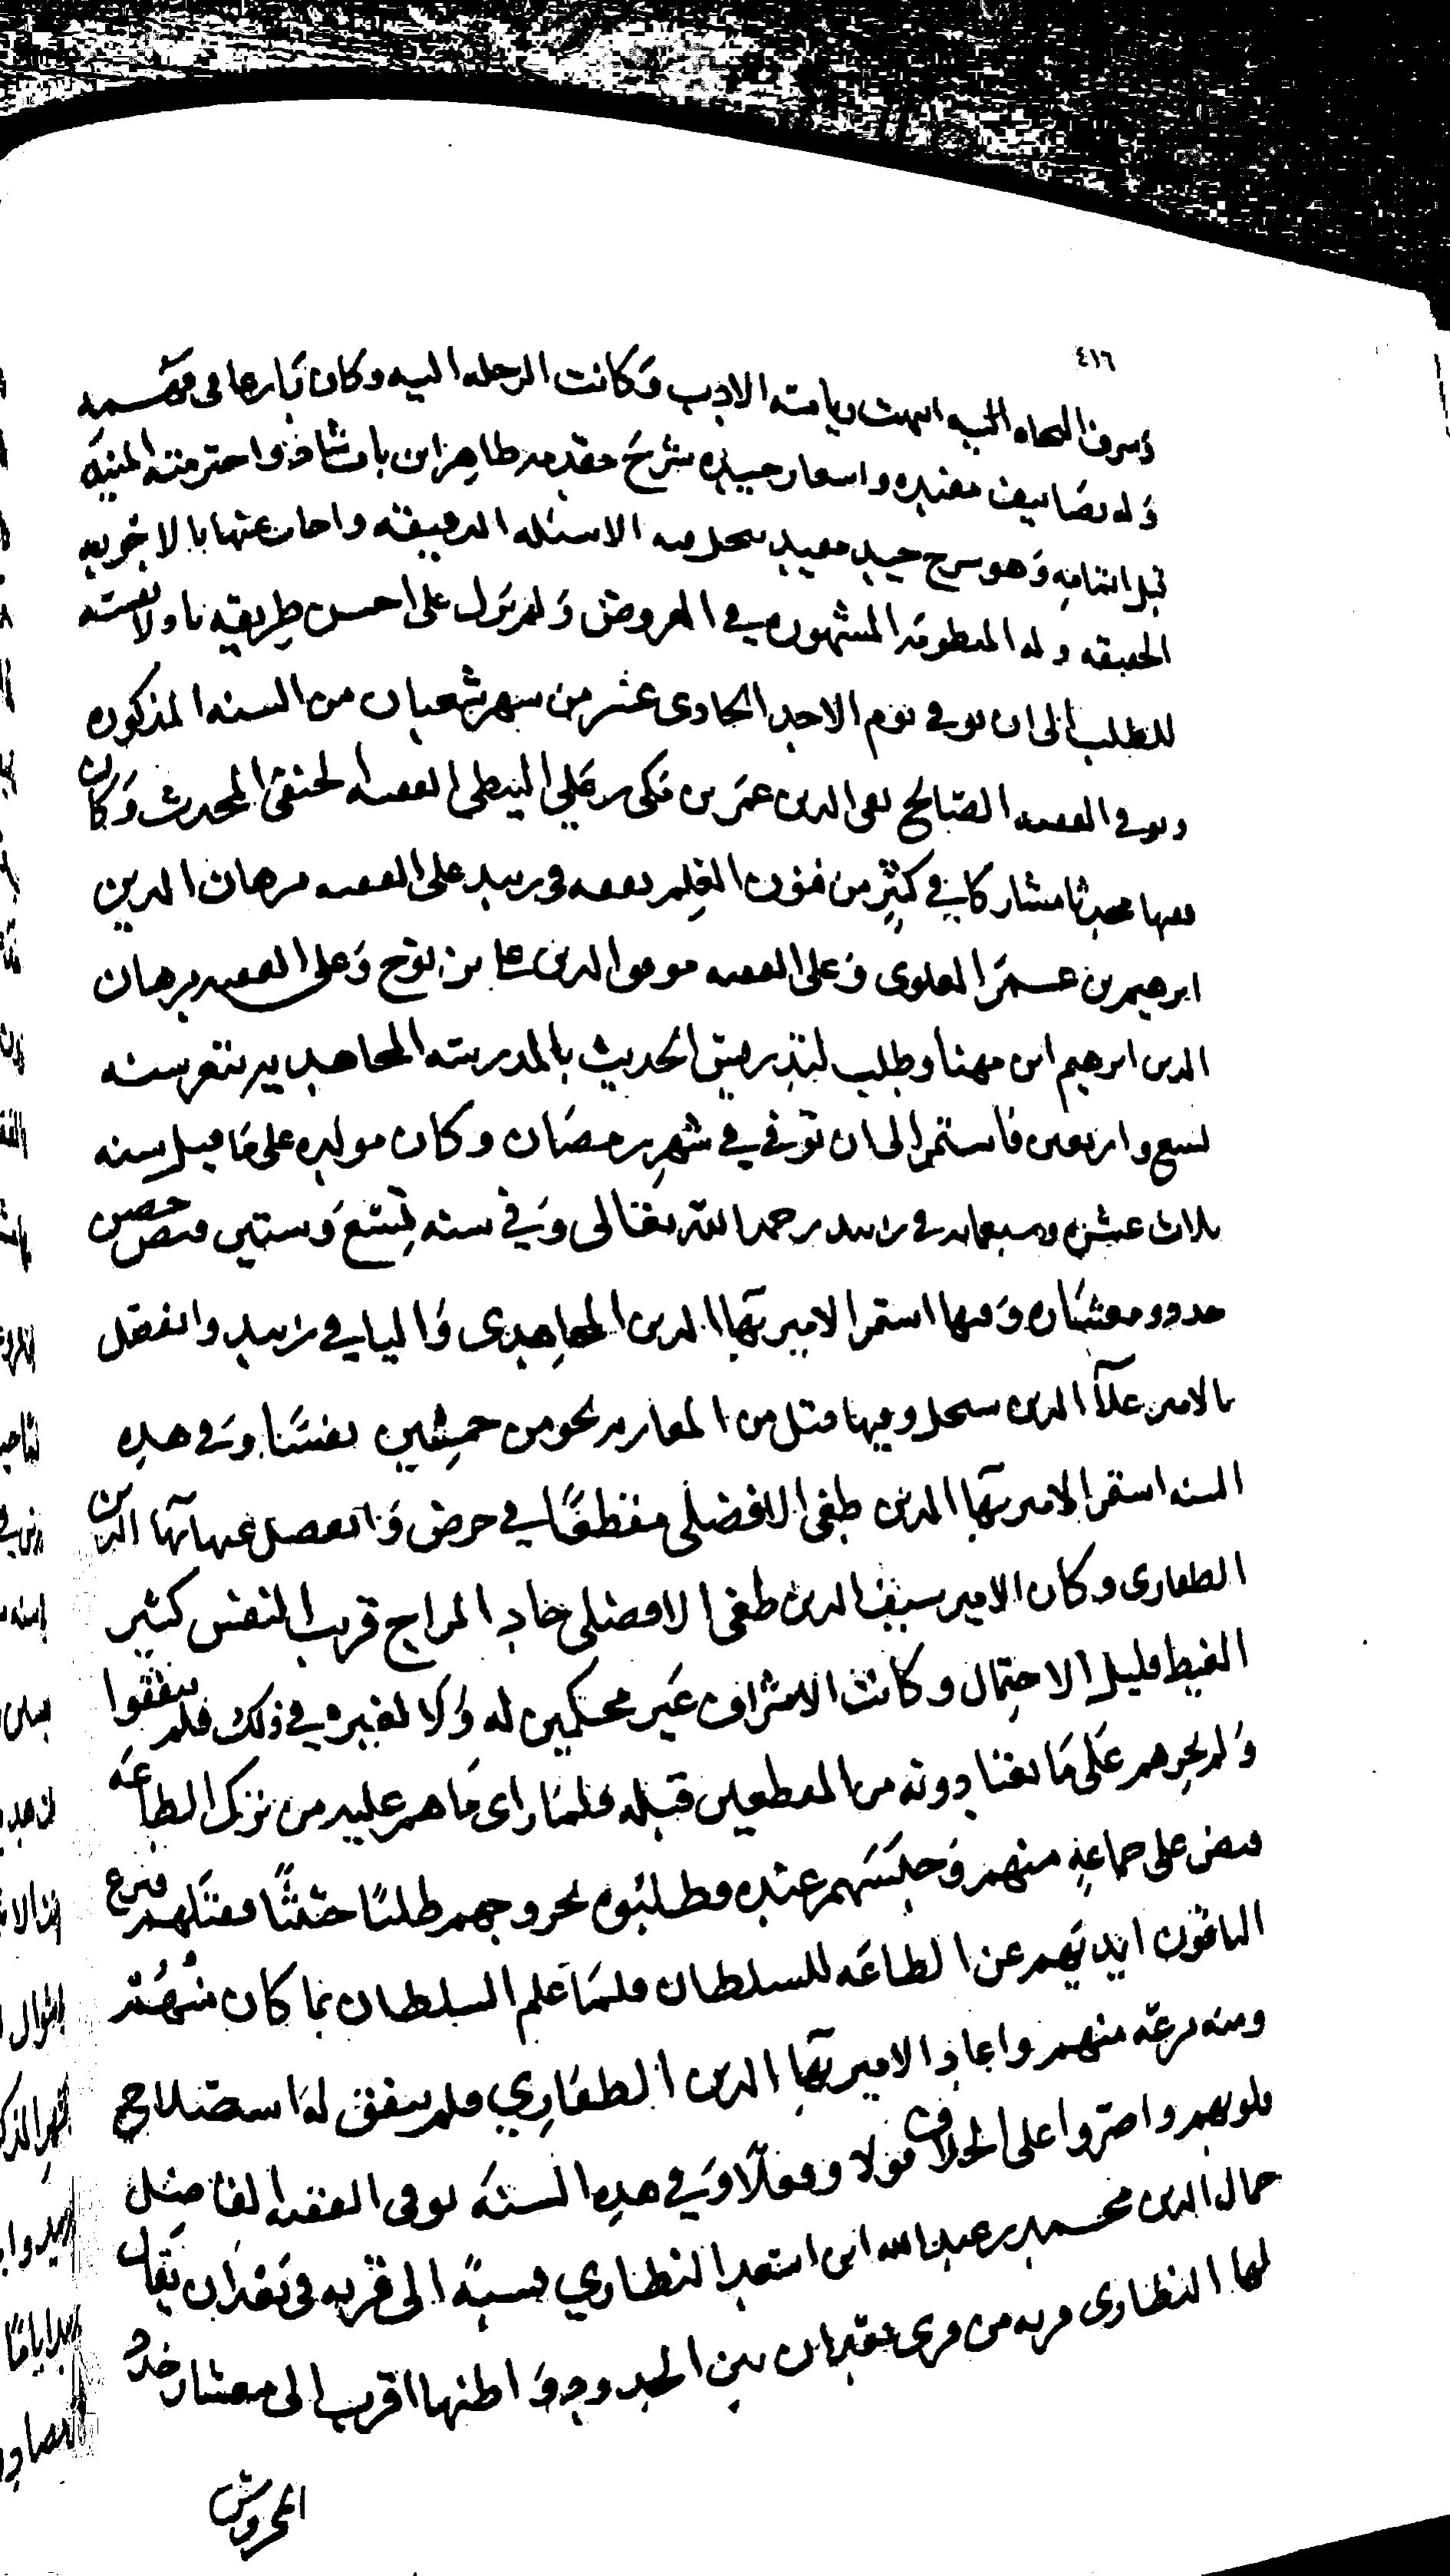 ٤١٦
وسرف النحاه اليه انتهت رياسته الادب وكانت الرحله اليه وكان بارعا في
وله تصانيف مفيده واسعار جيده شرح مقدمه طاهر ابن بابشاذ واخترمته المنيه
قبل اتمامه وهو سرح جيد مفيد الاسئله الدقيقه واجاب عنها بالاجوبه
الحقيقه وله المنظومه المشهوره في العروض ولم يزل على احسن طريقه
للطلب الى ان توفي يوم الاحد الحادي عشر من شهر شعبان من السنه المذكوره
وتوفي الفقيه الصالح تقي الدين عمر بن علي الفقيه الحنفي المحدث وكان
فقيها محدثا مشاركا في كثير من فنون العلم تفقه في زبيد على الفقيه برهان الدين
ابرهيم بن عمر العلوي وعلى الفقيه موفق الدين علي بن نوح وعلى الفقيه برهان
الدين ابرهيم ابن مهنا وطلب لتدريس الحديث بالمدرسته المجاهديه بتعز سنه
تسع واربعين فاستمر الى ان توفي في شهر رمضان وكان مولده على ما قيل سنه
ثلاث عشره وسبعمايه في زبيد رحمه الله تعالى وفي سنه تسع وستين قبض حصن
وفيها استمر الامير بها الدين المجاهدي واليا في زبيد وانفصل
بالامير علاء الدين وفيها قتل من المعازبه نحو من خمسين نفسا وفي هذه
السنه استقر الامير بها الدين طغي الافضلي مقطعا في حرض وانفصل عنها بها الدين
الظفاري وكان الامير سيف الدين طغي الافضلي حاد المزاج قريب النفس كثير
الغيظ قليل الاحتمال وكانت الاشراف غير محتكمين له ولا لغيره في ذلك فلم يتفقوا
ولم يجرهم على ما يعتادونه من المقطعين قبله فلما راى ما هم عليه من ترك الطاعه
قبض على جماعه منهم وحبسهم عنده وطلبوه خروجهم طلبا حثيثا فقتلهم فنزع
الباقون ايديهم عن الطاعه للسلطان فلما علم السلطان بما كان منهم
ومنه منهم واعاد الامير بها الدين الظفاري فلم يتفق له استصلاح
قلوبهم واصروا على الخلاف قولا وفعلا وفي هذه السنه توفي الفقيه الفاضل
جمال الدين محمد بن عبد الله ابن اسعد النظاري نسبه الى قريه في بعدان يقال
لها النظاري قريه من قرى بعدان بين الحد اقرب الى معشار
المحروس